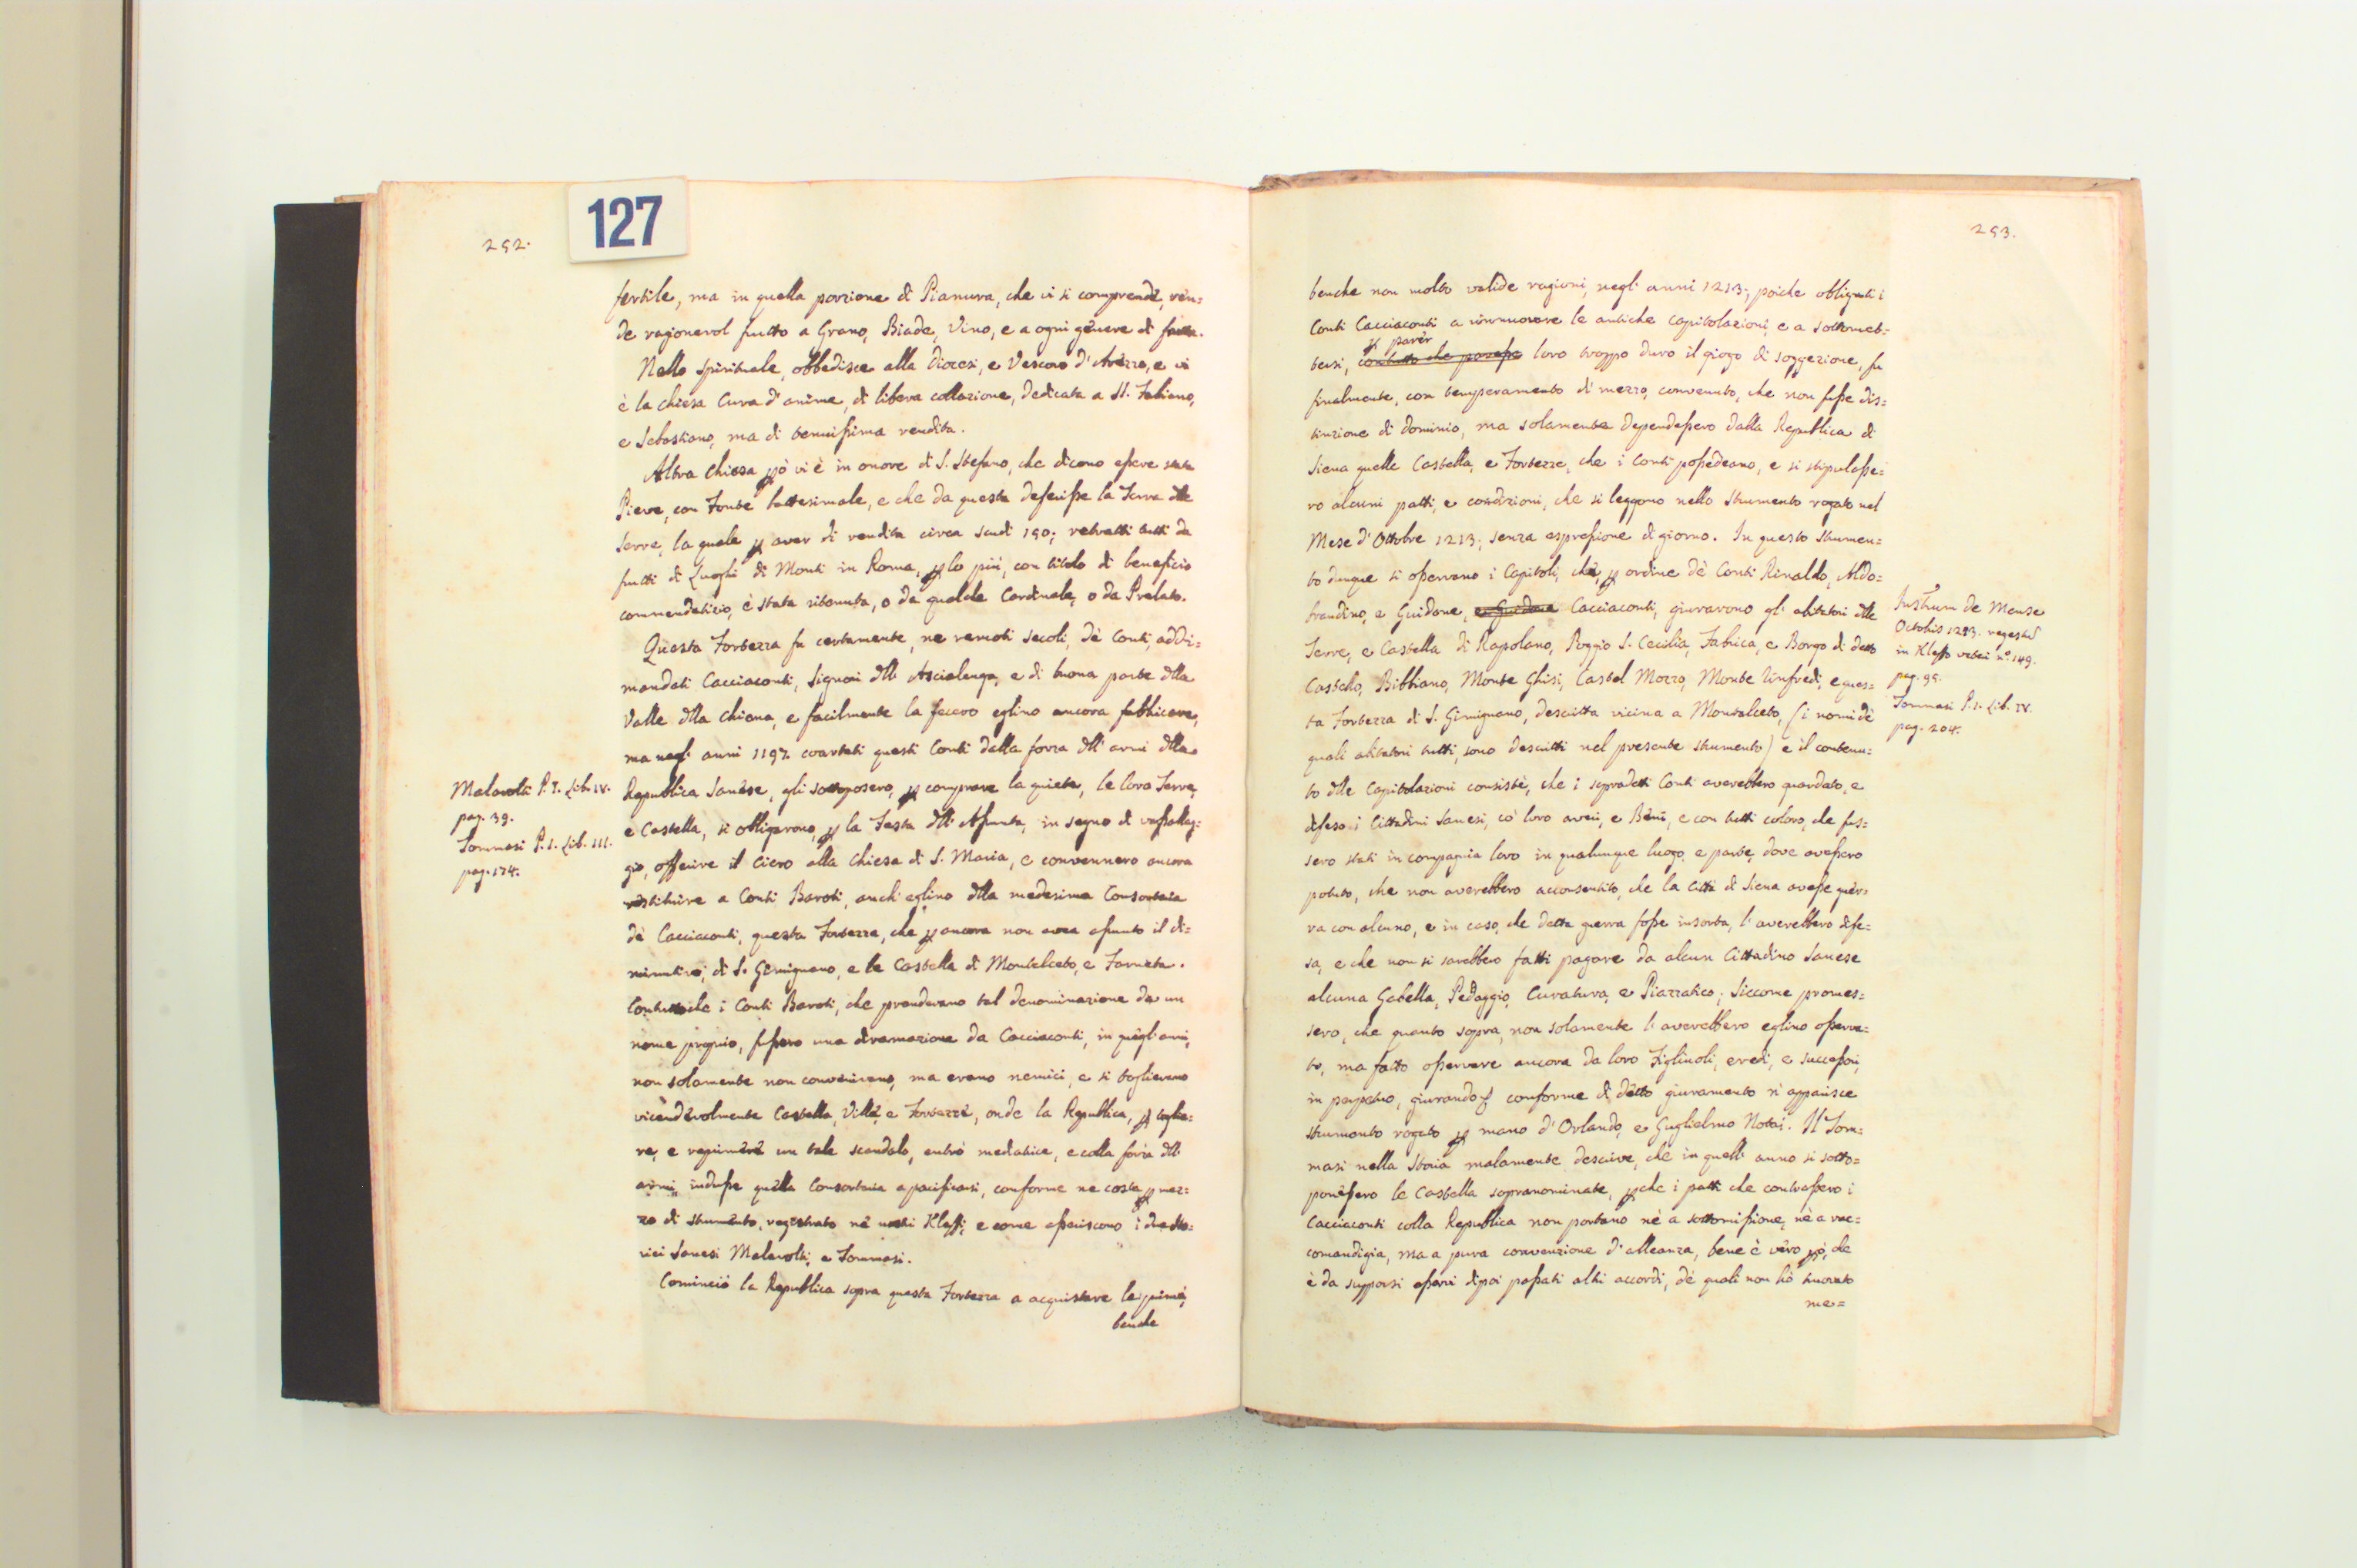 252.
127
fertile, ma in quella porzione di Pianura, che vi si comprende, ren=
de ragionevol frutto a Grano, Biade, Vino, e a ogni genere di frutta.
Nello spirituale, obbedisce alla Diocesi, e Vescovo d'Arezzo, e vi
è la chiesa Cura d'anime, di libera collazione, dedicata a SS. Fabiano,
e Sebastiano, ma di tenuissima rendita.
Altra Chiesa pò vi è in onore di S. Stefano, che dicono essere stata
Pieve, con Fonte battesimale, e che da questa desunsse la Terra dlle
Serre, la quale p aver di rendita circa scudi 150; retratti tutti da
frutti di Luoghi di Monti in Roma, p lo più, con titolo di beneficio
commendatizio, è stata ritenuta, o da qualche Cardinale, o da Prelato.
Questa Fortezza fu certamente, ne remoti secoli, dè Conti, addi=
mandati Cacciaconti, Signori dll' Ascialenga, e di buona parte dlla
Valle dlla Chiana, e facilmente la fecero eglino ancora fabbricare,
ma negl' anni 1197. coartati questi Conti dalla forza dll' armi dlla
Republica Sanese, gli sottoposero, p comprare la quiete, le loro Terre,
e Castella, si obligarono, p la Festa dll' Assunta, in segno di vassallag=
gio, offerire il Ciero alla Chiesa di S. Maria, e convennero ancora
restituire a Conti Baroti, anch' eglino dlla medesima Consorteria
dè Cacciaconti, questa Fortezza, che p ancora non avea assunto il di=
minutivo, di S. Gimignano, e le Castella di Montalceto, e Farneta.
Contuttoche i Conti Baroti, che prendevano tal denominazione da un
nome proprio, fussero una diramazione da Cacciaconti, in quegl'anni,
non solamente non convenivano, ma erano nemici, e si toglievano
vicendevolmente Castella, Ville, e Fortezze, onde la Republica, p toglie=
re, e reprimere un tale scandalo, entrò mediatrice, e colla forza dll'
armi, indusse quella Consorteria a pacificarsi, conforme ne costa p mez=
zo di strumento, registrato nè nostri Kleffi, e come asseriscono i due sto=
rici Sanesi Malavolti, e Tommasi.
Cominciò la Republica sopra questa Fortezza a acquistare le prime,
benche
Malavolti P. I. Lib. IV.
pag. 39.
Tommasi P. 1. Lib. III.
pag. 174.
253.
benche non molto valide ragioni, negl' anni 1213; poiche obligati i
Conti Cacciaconti a rinnuovare le antiche capitolazioni, e a sottomet=
p parer
tersi, contutto che paresse loro troppo duro il giogo di soggezione, fu
finalmente, con temperamento di mezzo, convenuto, che non fusse dis=
tinzione di dominio, ma solamente dependessero dalla Republica di
Siena quelle Castella, e Fortezze, che i Conti possedeano, e si stipulasse=
ro alcuni patti, e condizioni, che si leggono nello strumento rogato nel
Mese d'Ottobre 1213; senza espressione di giorno. In questo strumen=
to dunque si osservano i Capitoli, che, p ordine dè Conti Rinaldo, Aldo=
brandino, e Guidone, e Guidone Cacciaconti, giurarono gl' abitatori dlle
Serre, e Castella di Rapolano, Poggio S. Cecilia, Fabrica, e Borgo di detto
Castello, Bibbiano, Monte Ghisi, Castel Mozzo, Monte Linfredi, e ques=
ta Fortezza di S. Gimignano, descritta vicina a Montalceto, (i nomi dè
quali abitatori tutti, sono descritti nel presente strumento) e il contenu=
to dlle Capitolazioni consistè, che i sopradetti Conti averebbero guardato, e
difeso i Cittadini Sanesi, co' loro averi, e Beni, e con tutti coloro, che fus=
sero stati in compagnia loro in qualunque luogo, e parte, dove avessero
potuto, che non averebbero acconsentito, che la Città di Siena avesse guer=
ra con alcuno, e in caso, che detta guerra fosse insorta, l' averebbero dife=
sa, e che non si sarebbero fatti pagare da alcun Cittadino Sanese
alcuna Gabella, Pedaggio, Curatura, e Piazzatico; Siccome promes=
sero, che quanto sopra, non solamente l' averebbero eglino osserva=
to, ma fatto osservare ancora da loro Figliuoli, eredi, e successori,
in perpetuo, giurando, conforme di detto giuramento n' apparisce
strumento rogato p mano d'Orlando, e Guglielmo Notai. Il Tom=
masi nella Storia malamente descrive, che in quell' anno si sotto=
ponessero le Castella sopranominate, p che i patti che contrassero i
Cacciaconti colla Republica non portano nè a sottomissione, nè a rac=
comandigia, ma a pura convenzione d' alleanza, bene è vero pò, che
è da supporsi essersi dipoi passati altri accordi, dè quali non hò truovato
me=
Instrum de Mense
Octobis 1213. regestu
in Kleffo veteri n.° 149.
pag. 95.
Tommasi P. 1. Lib. IV.
pag. 204.